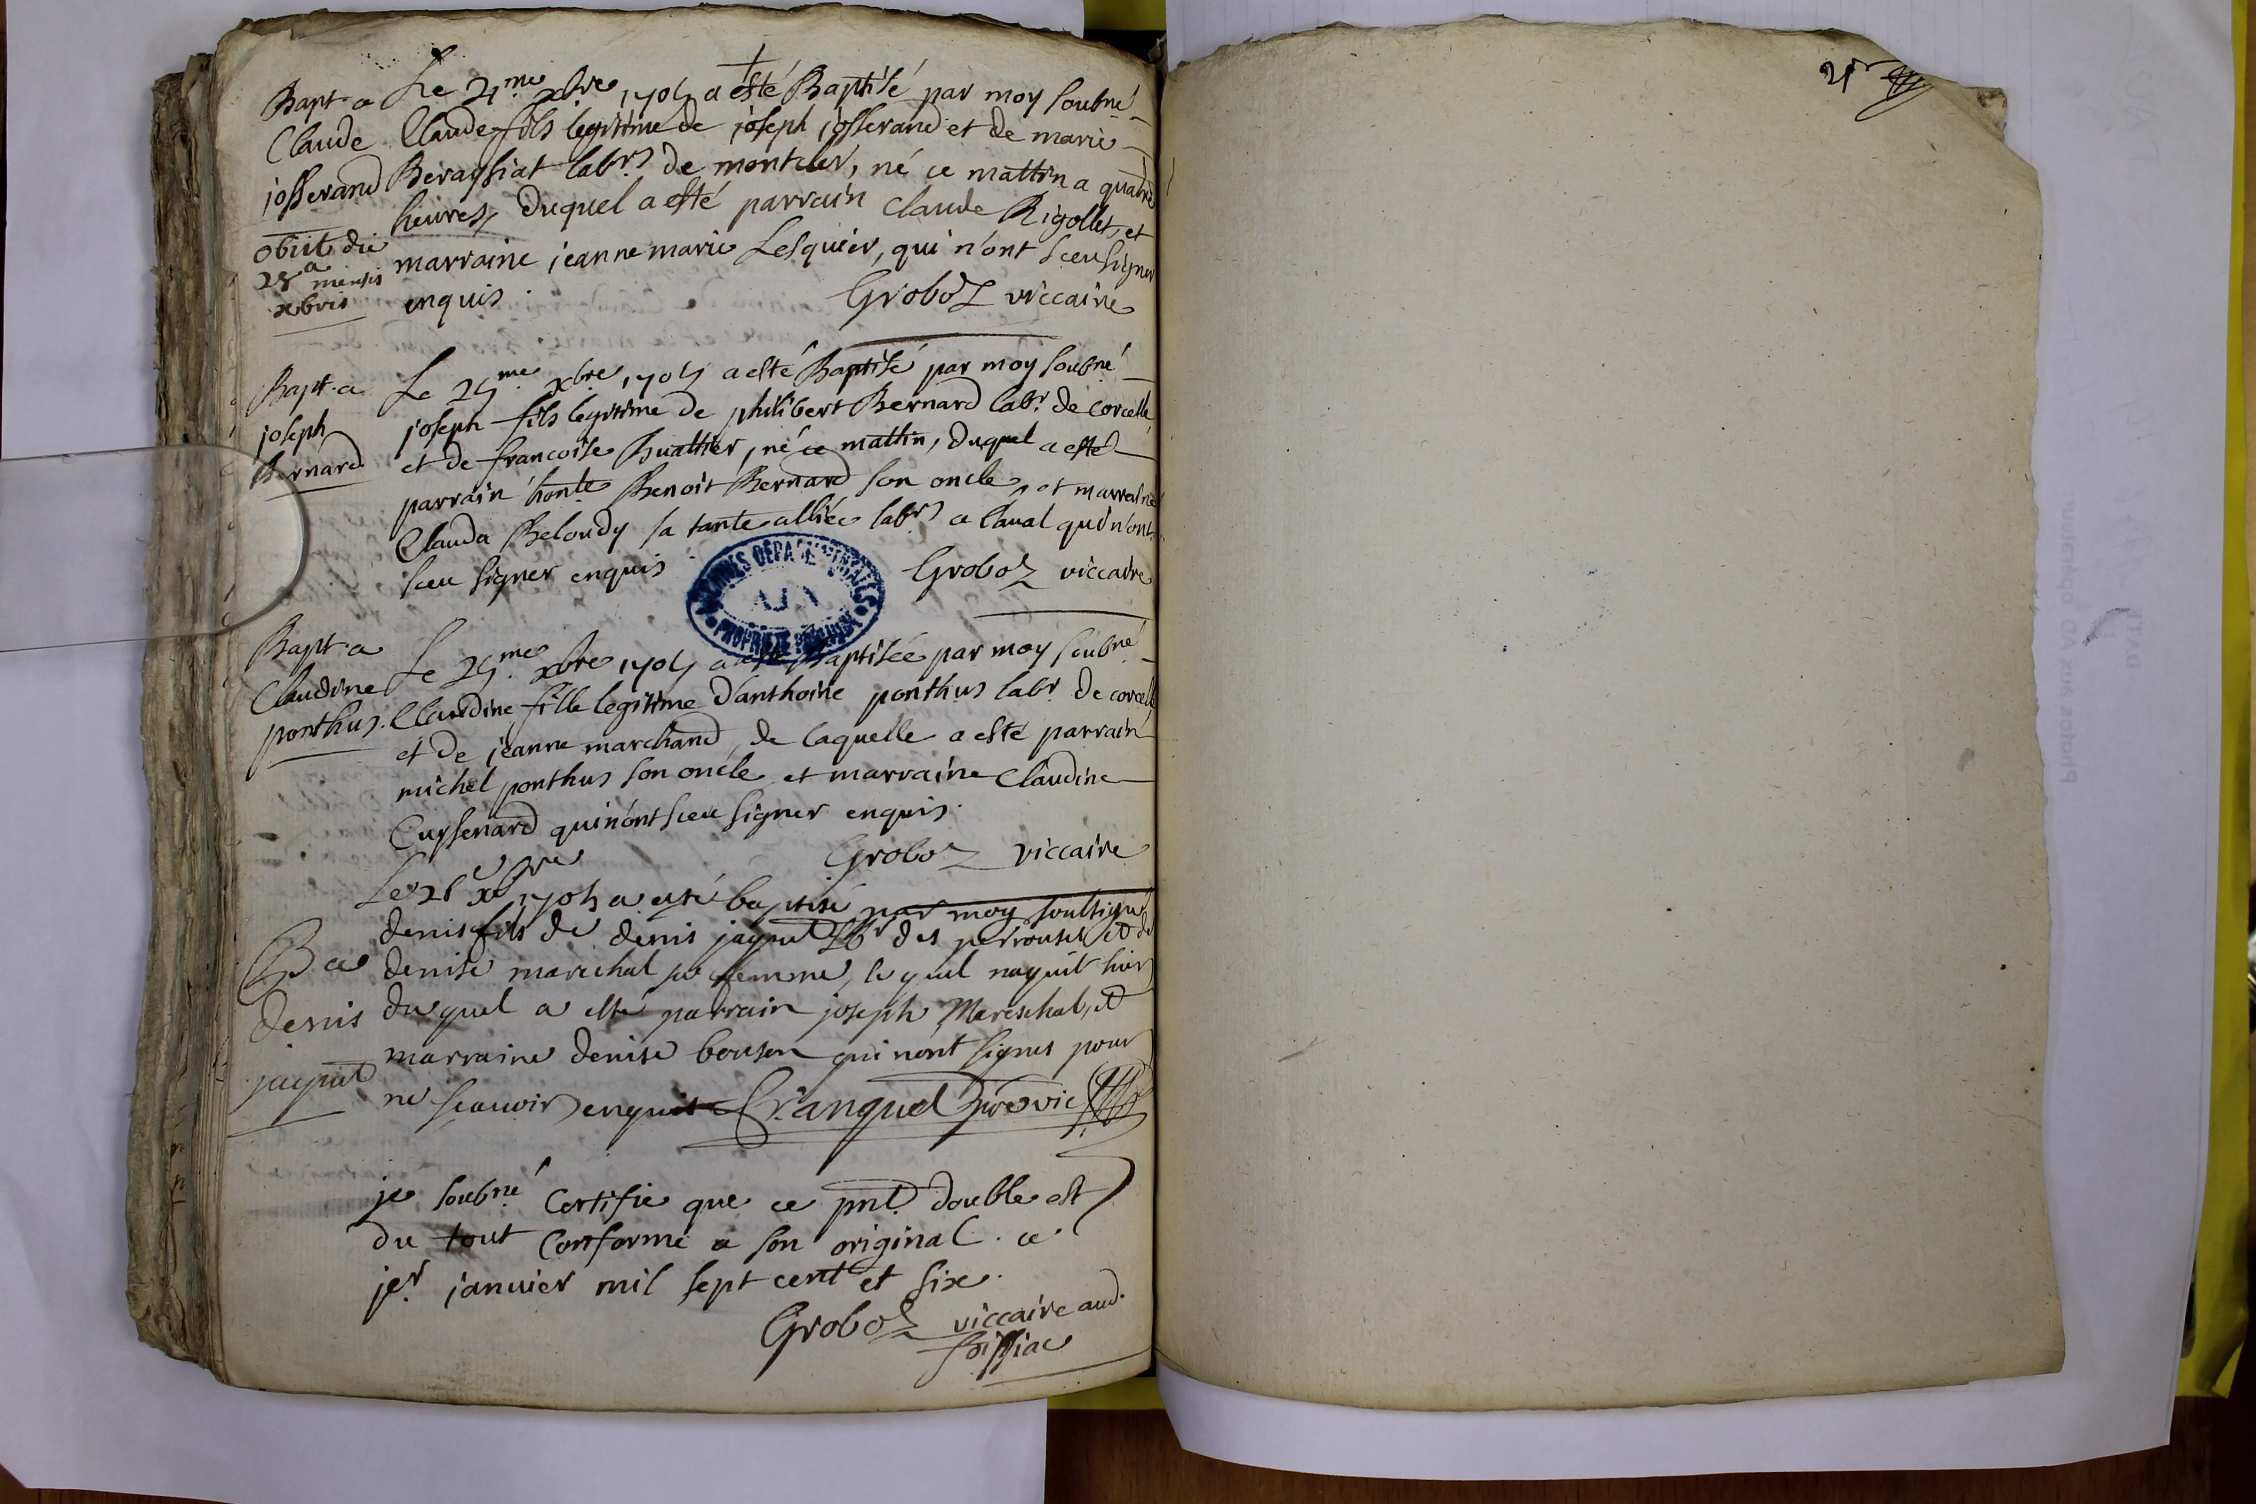 Bapt. a
Claude
josserand
obiit die
28a mensis
xbris
Le 21me xbre 1705 a esté Baptisé par moy soubné
Claude fils legitime de joseph josserand et de marie
Beraghiat labrs de montcler, né ce mattin a quatre
heures, duquel a esté parrain Claude Rigollet, et
marraine jeanne marie Lesquier, qui n'ont sceu signer
enquis.
Groboz viccaire
Bapt. a
joseph
Bernard
Le 25me xbre 1705 a esté Baptisé par moy soubné
joseph fils legitime de philibert Bernard labr de corcelle
et de francoise Buathier, né ce mattin, duquel a esté
parrain honte Benoit Bernard son oncle, et marraine
Clauda Beloudy sa tante alliée labrs a laval qui n'ont
sceu signer enquis
Groboz viccaire
ARCHIVES DEPARTEMENTALES
AIN
PROPRIETE PUBLIQUE
Bapt. a
Claudine
ponthus.
Le 25me xbre 1705 a esté Baptisée par moy soubné
Claudine fille legitime d'anthoine ponthus labr de corcelle
et de jeanne marchand, de laquelle a esté parrain
michel ponthus son oncle et marraine Claudine
Cuysenard qui n'ont sceu signer enquis.
Groboz viccaire
B a
denis
jaquet
Le 26e xbre 1705 a esté baptisé par moy soulsigné
denis fils de denis jaquet lbr des perrouses et de
denise marechal sa femme, lequel naquit hier
duquel a esté parrain joseph Mareschal, et
marraine denise bouson qui n'ont signés pour
ne scavoir enquis Franquet pre vic
je soubné Certifie que ce pnt double est
du tout Conforme a son original. ce
jer janvier mil sept cent et six.
Groboz viccaire aud.
foissiac
21